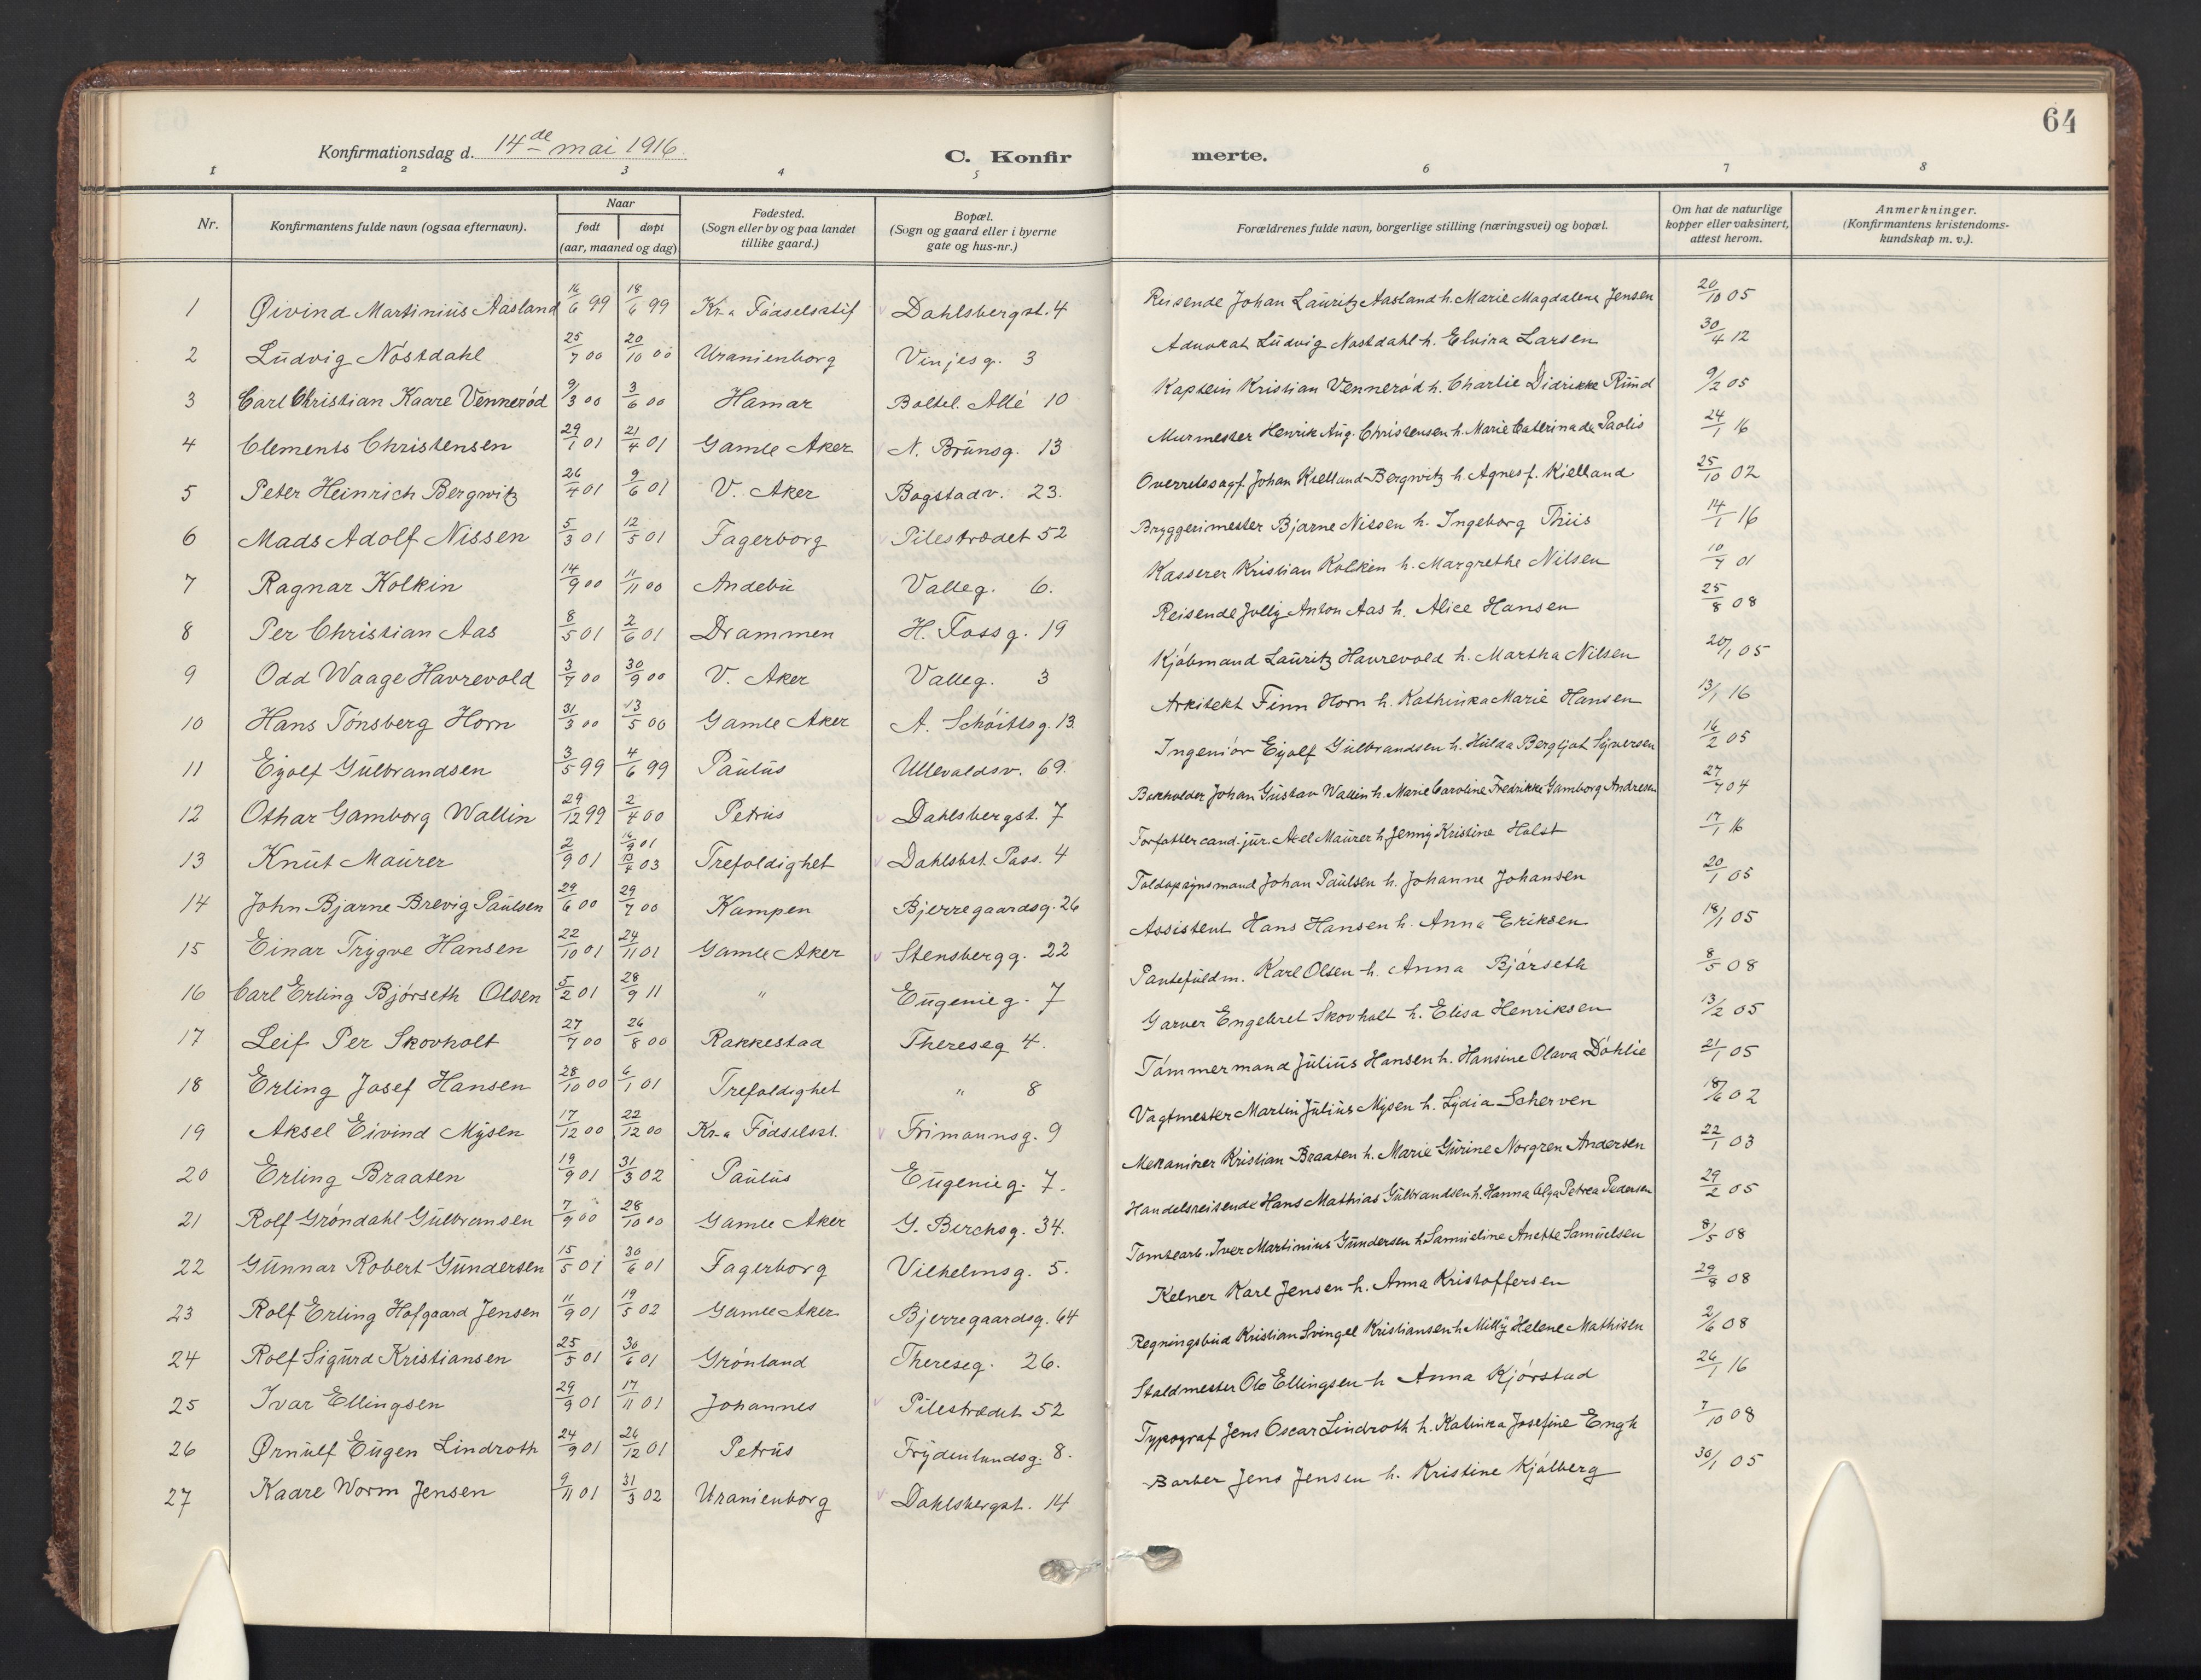 64
Konfirmationsdag d. 14de mai 1916.
C. Konfirmerte.
1 2 3 4 5 6 7 8
Nr.
Konfirmantens fulde navn (ogsaa efternavn).
Naar
født døpt
(aar, maaned og dag)
Fødested.
(Sogn eller by og paa landet
tillike gaard.)
Bopæl.
(Sogn og gaard eller i byerne
gate og hus-nr.)
Forældrenes fulde navn, borgerlige stilling (næringsvei) og bopæl.
Om hat de naturlige
kopper eller vaksinert,
attest herom.
Anmerkninger.
(Konfirmantens kristendoms-
kundskap m. v.).
1 Øivind Martinius Aasland 16/6 99 18/6 99 Kr.a Fødselsstif Dahlsbergst. 4 Reisende Johan Lauritz Aasland h. Marie Magdalene Jensen 20/10 05
2 Ludvig Nøstdahl 25/7 00 20/10 00 Uranienborg Vinjesg. 3 Advokat Ludvig Nøstdahl h. Elvira Larsen 30/4 12
3 Carl Christian Kaare Vennerød 9/3 00 3/6 00 Hamar Boltel. Allé 10 Kaptein Kristian Vennerød h. Charlie Didrikke Ruud 9/2 05
4 Clements Christensen 29/1 01 21/4 01 Gamle Aker N. Brunsg. 13 Murmester Henrik Aug. Christensen h. Marie Caterina de Paolis 24/1 16
5 Peter Heinrich Bergwitz 26/4 01 9/6 01 V. Aker Bogstadv. 23. Overretssagf. Johan Kielland-Bergwitz h. Agnes f. Kielland 25/10 02
6 Mads Adolf Nissen 5/3 01 12/5 01 Fagerborg Pilestrædet 52 Bryggerimester Bjarne Nissen h. Ingeborg Thiis 14/1 16
7 Ragnar Kolkin 14/9 00 11/11 00 Andebu Valleg. 6. Kasserer Kristian Kolkin h. Margrethe Nilsen 10/7 01
8 Per Christian Aas 8/5 01 2/6 01 Drammen H. Fossg. 19 Reisende Anton Aas h. Alice Hansen 25/8 08
9 Odd Waage Havrevold 3/7 00 30/9 00 V. Aker Valleg. 3 Kjøbmand Lauritz Havrevold h. Martha Nilsen 20/1 05
10 Hans Tønsberg Horn 31/3 00 13/5 00 Gamle Aker A. Schøittsg. 13. Arkitekt Finn Horn h. Kathinka Marie Hansen 13/1 16
11 Eyolf Gulbrandsen 3/5 99 4/6 99 Paulus Ullevoldsv. 69. Ingeniør Eyolf Gulbrandsen h. Hulda Bergljot Syversen 16/2 05
12 Othar Gamborg Wallin 29/12 99 2/4 00 Petrus Dahlsbergst. 7 Bokholder Johan Gustav Wallin h. Marie Caroline Fredrikke Gamborg Andresen 27/7 04
13 Knut Maurer 2/9 01 16/9 01 13/4 03 Trefoldighet Dahlsbst. Pass. 4 Forfatter cand. jur. Axel Maurer h. Jenny Kristine Holst 17/1 16
14 John Bjarne Brevig Paulsen 29/6 00 29/7 00 Kampen Bjerregaardsg. 26 Toldopsynsmand Johan Paulsen h. Johanne Johansen 20/1 05
15 Einar Trygve Hansen 22/10 01 24/11 01 Gamle Aker Stensbergg. 22 Assistent Hans Hansen h. Anna Eriksen 18/1 05
16 Carl Erling Bjørseth Olsen 5/2 01 28/9 11 " Eugenieg. 7 Pantefuldm. Karl Olsen h. Anna Bjørseth 8/5 08
17 Leif Per Skovholt 27/7 00 26/8 00 Rakkestad Thereseg 4. Garver Engebret Skovholt h. Elisa Henriksen 13/2 05
18 Erling Josef Hansen 28/10 00 6/1 01 Trefoldighet " 8 Tømmermand Julius Hansen h. Hansine Olava Døhlie 21/1 05
19 Aksel Eivind Mysen 17/12 00 22/12 00 Kr.a Fødselsst. Frimannsg. 9 Vagtmester Martin Julius Mysen h. Lydia Scherven 18/6 02
20 Erling Braaten 19/9 01 31/3 02 Paulus Eugenieg. 7. Mekaniker Kristian Braaten h. Marie Gurine Norgren Andersen 22/1 03
21 Rolf Grøndahl Gulbransen 7/9 00 28/10 00 Gamle Aker G. Birchsg. 34. Handelsreisende Hans Mathias Gulbrandsen h. Hanna Olga Petrea Pedersen 29/2 05
22 Gunnar Robert Gundersen 15/5 01 30/6 01 Fagerborg Vilhelmsg. 5. Tomtearb. Iver Martinius Gundersen h. Samueline Anette Samuelsen 8/5 08
23 Rolf Erling Hofgaard Jensen 11/9 01 19/5 02 Gamle Aker Bjerregaardsg. 64 Kelner Karl Jensen h. Anna Kristoffersen 29/8 08
24 Rolf Sigurd Kristiansen 25/5 01 30/6 01 Grønland Thereseg. 26. Regningsbud Kristian Svingel Kristiansen h. Milly Helene Mathisen 2/6 08
25 Ivar Ellingsen 29/9 01 17/11 01 Johannes Pilestrædet 52 Staldmester Ole Ellingsen h Anna Kjørstad 26/1 16
26 Ørnulf Eugen Lindroth 24/9 01 26/12 01 Petrus Frydenlundsg. 8. Typograf Jens Oscar Lindroth h. Katinka Josefine Engh 7/10 08
27 Kaare Worm Jensen 9/11 01 31/3 02 Uranienborg Dahlsbergst. 14 Barber Jens Jensen h. Kristine Kjølberg 30/1 05